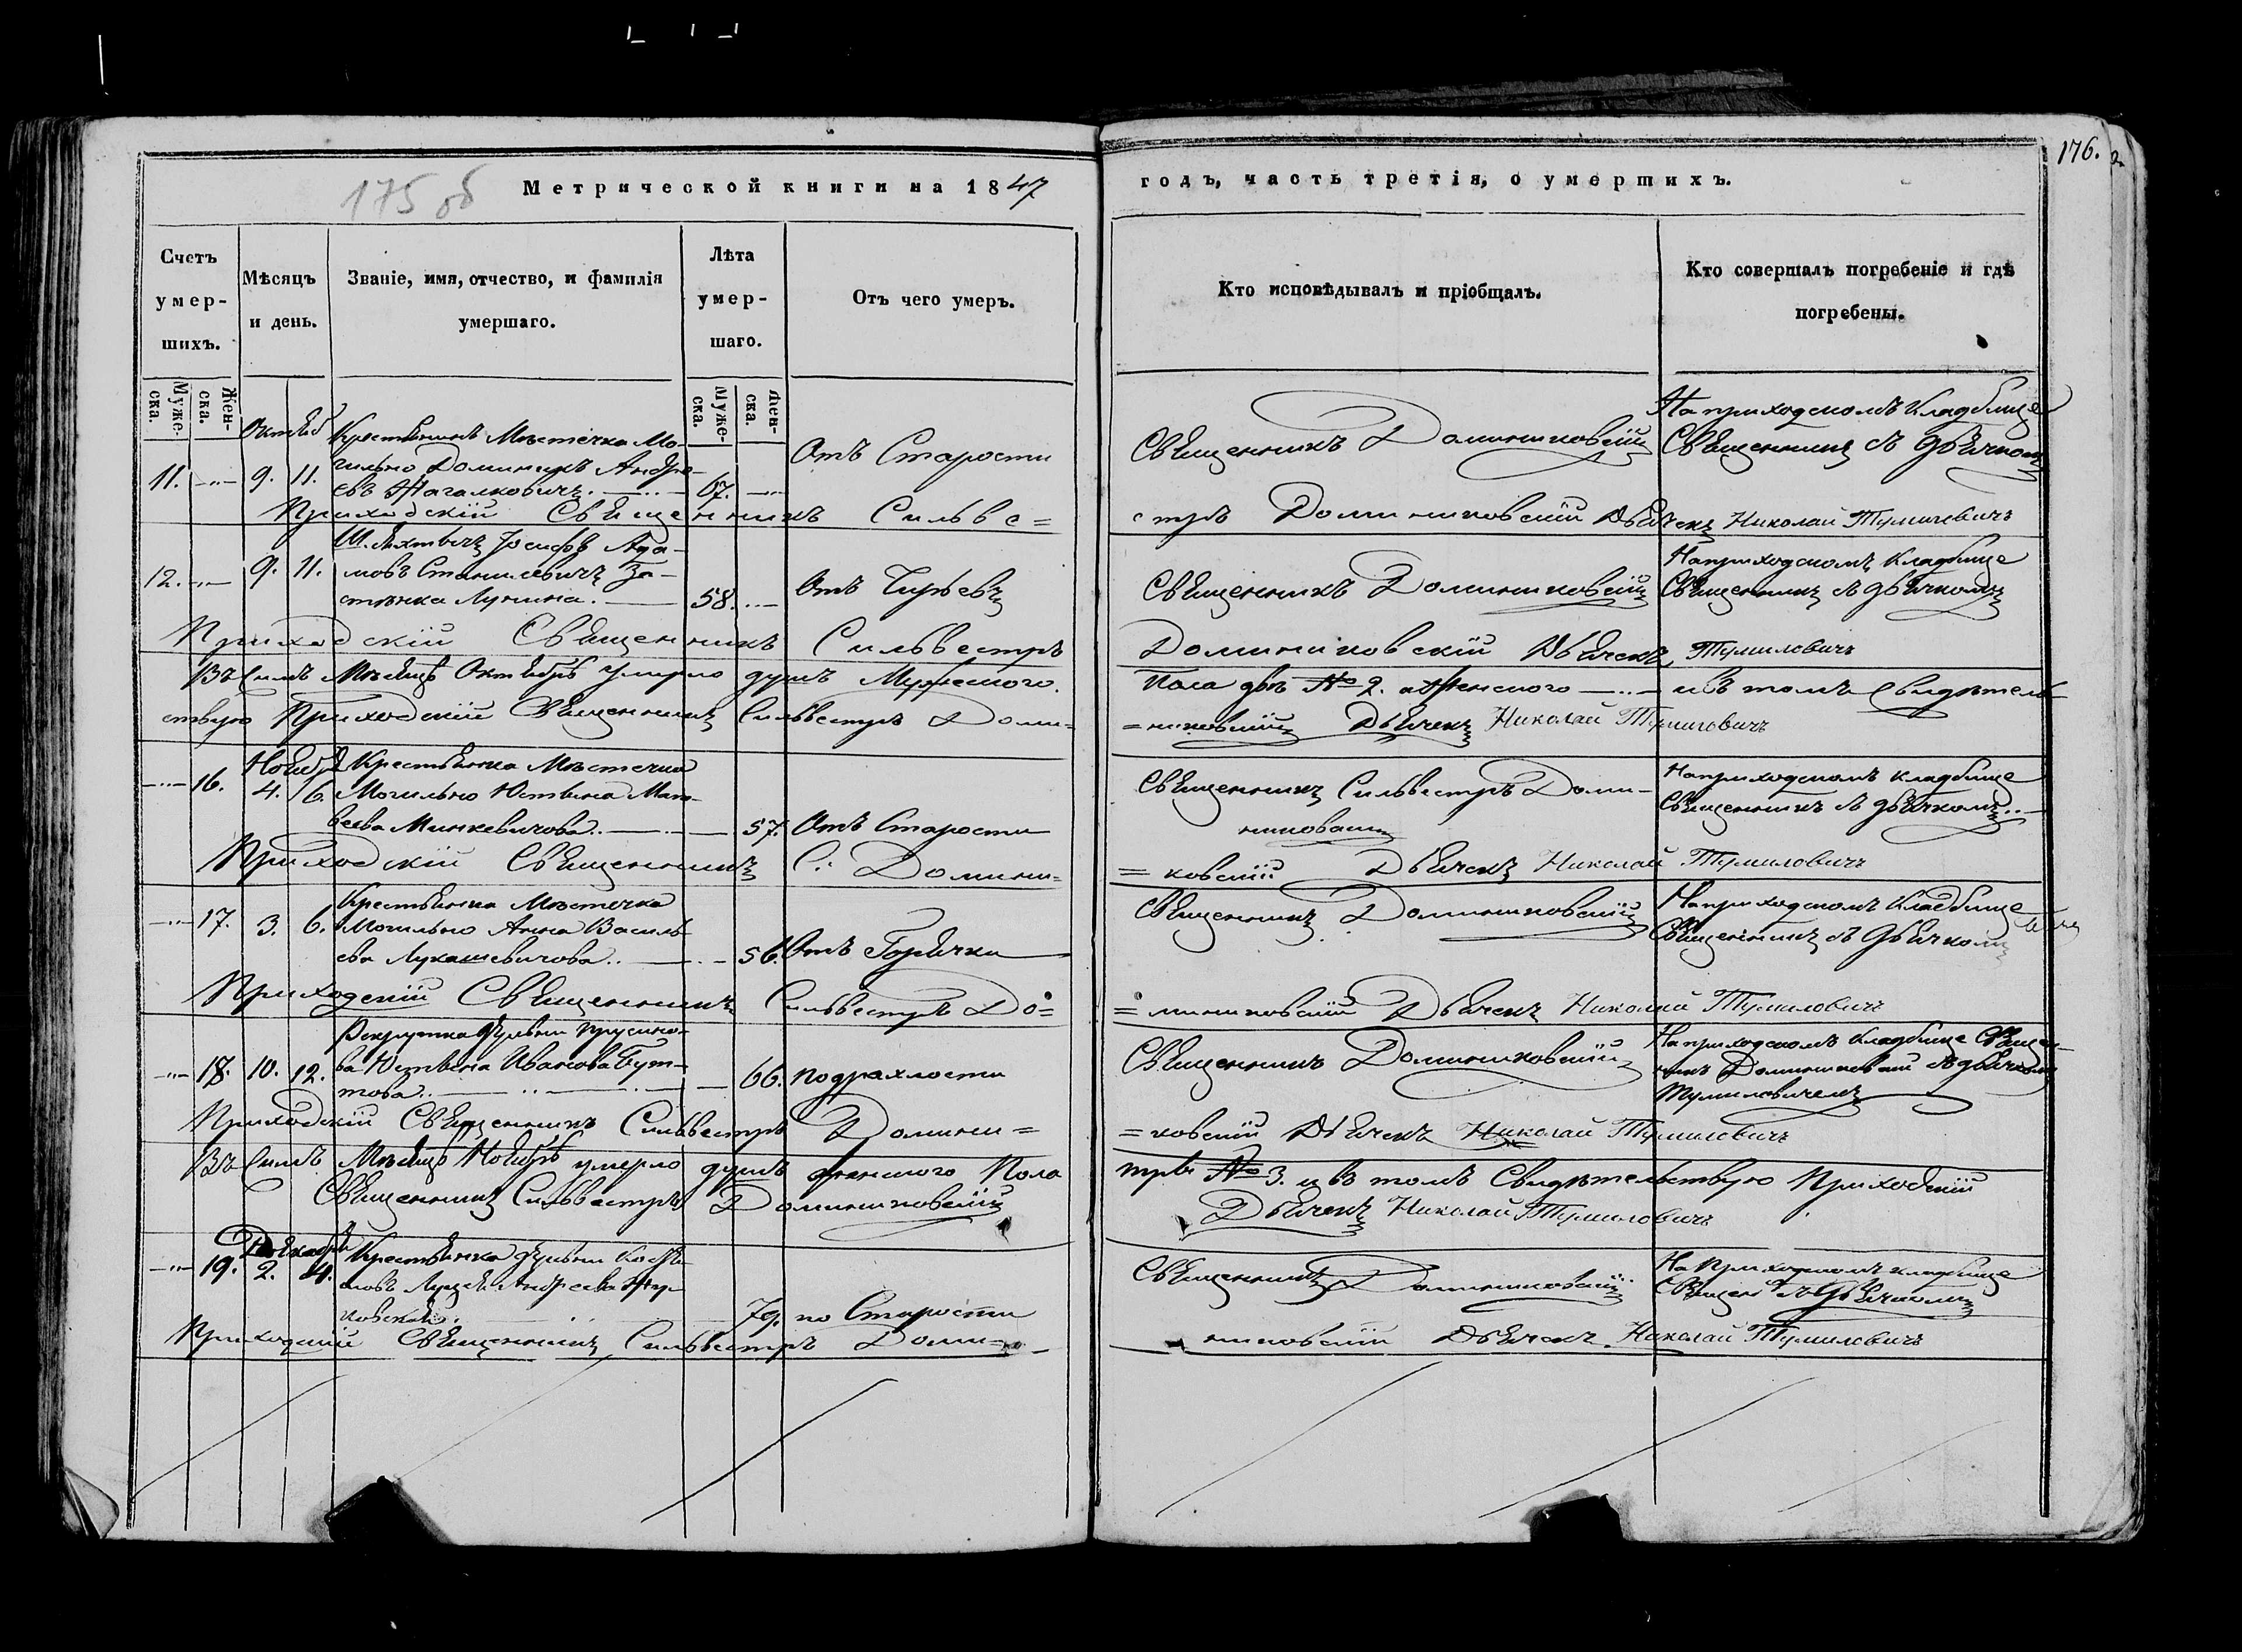 175 об
Метрической книги на 1847
годъ, часть третія, о умершихъ.
176.
Счетъ умер-шихъ.
Мѣсяцъ и день.
Званіе, имя, отчество, и фамилія умершаго.
Лѣта умер-шаго.
Отъ чего умеръ.
Кто исповѣдывалъ и пріобщалъ.
Кто совершалъ погребеніе и гдѣ погребены.
Муже-ска.
Жен-ска.
Муже-ска.
Жен-ска.
Октяб
11. 9. 11.
Крестьянинъ Мѣстечка Мо-
гильно Доминикъ Андре-
евъ Жагалковичъ.
67.
Отъ Старости
Священникъ Доминиковскій
На приходскомъ Кладбище
Священникъ съ дьячкомъ
Приходскій Священникъ Сильве=
стръ Доминиковскій Дьячекъ Николай Тумилевичъ
12. 9. 11.
Шляхтичъ Іосифъ Ада-
мовъ Станилевичъ За-
стѣнка Лунина.
58.
Отъ Чирьевъ
Священникъ Доминиковскій
На приходскомъ Кладбище
Священникъ съ дьячкомъ
Приходскій Священникъ Сильвестръ
Доминиковскій Дьячекъ Тумиловичъ
Въ Семъ Мѣсяцѣ Октябрѣ умерло душъ Мужеского
Пола двѣ № 2. а Женского и въ томъ Свидѣтель-
ствую Приходскій Священникъ Сильвестръ Доми-
=никовскій Дьячекъ Николай Тумиловичъ
Ноября
16. 4. 6.
Крестьянка Мѣстечка
Могильно Юстина Мат-
веева Минкевичова.
57.
Отъ Старости
Священникъ Сильвестръ Доми-
никовскій
На приходскомъ кладбище
Священникъ съ дьячкомъ
Приходскій Священникъ С: Домини=
=ковскій Дьячекъ Николай Тумиловичъ
17. 3. 6.
Крестьянка Мѣстечка
Могильно Анна Василь
ева Лукашевичова.
56.
Отъ Горячки
Священникъ Доминиковскій
На приходскомъ Кладбище
Священникъ съ дьячкомъ
Приходскій Священникъ Сильвестръ До=
=миниковскій Дьячекъ Николай Тумиловичъ
18. 10. 12.
Рекрутка
ва Юстина Иванова Бут-
това.
66.
по дряхлости
Священникъ Доминиковскій
На приходскомъ Кладбище Священ-
никъ Доминиковскій съ дьячкомъ
Тумиловичемъ
Приходскій Священникъ Сильвестръ Домини=
=ковскій Дьячекъ Николай Тумиловичъ
Въ Семъ Мѣсяцѣ Ноябрѣ умерло душъ женского Пола
три № 3. и въ томъ Свидѣтельствую Приходскій
Священникъ Сильвестръ Доминиковскій
Дьячекъ Николай Тумиловичъ
Декабря
19. 2. 4.
Крестьянка
Андреева
79.
по Старости
Священникъ Доминиковскій
На Приходскомъ кладбище
Священ съ Дьячкомъ
Приходскій Священникъ Сильвестръ Доми=
никовскій Дьячекъ Николай Тумиловичъ